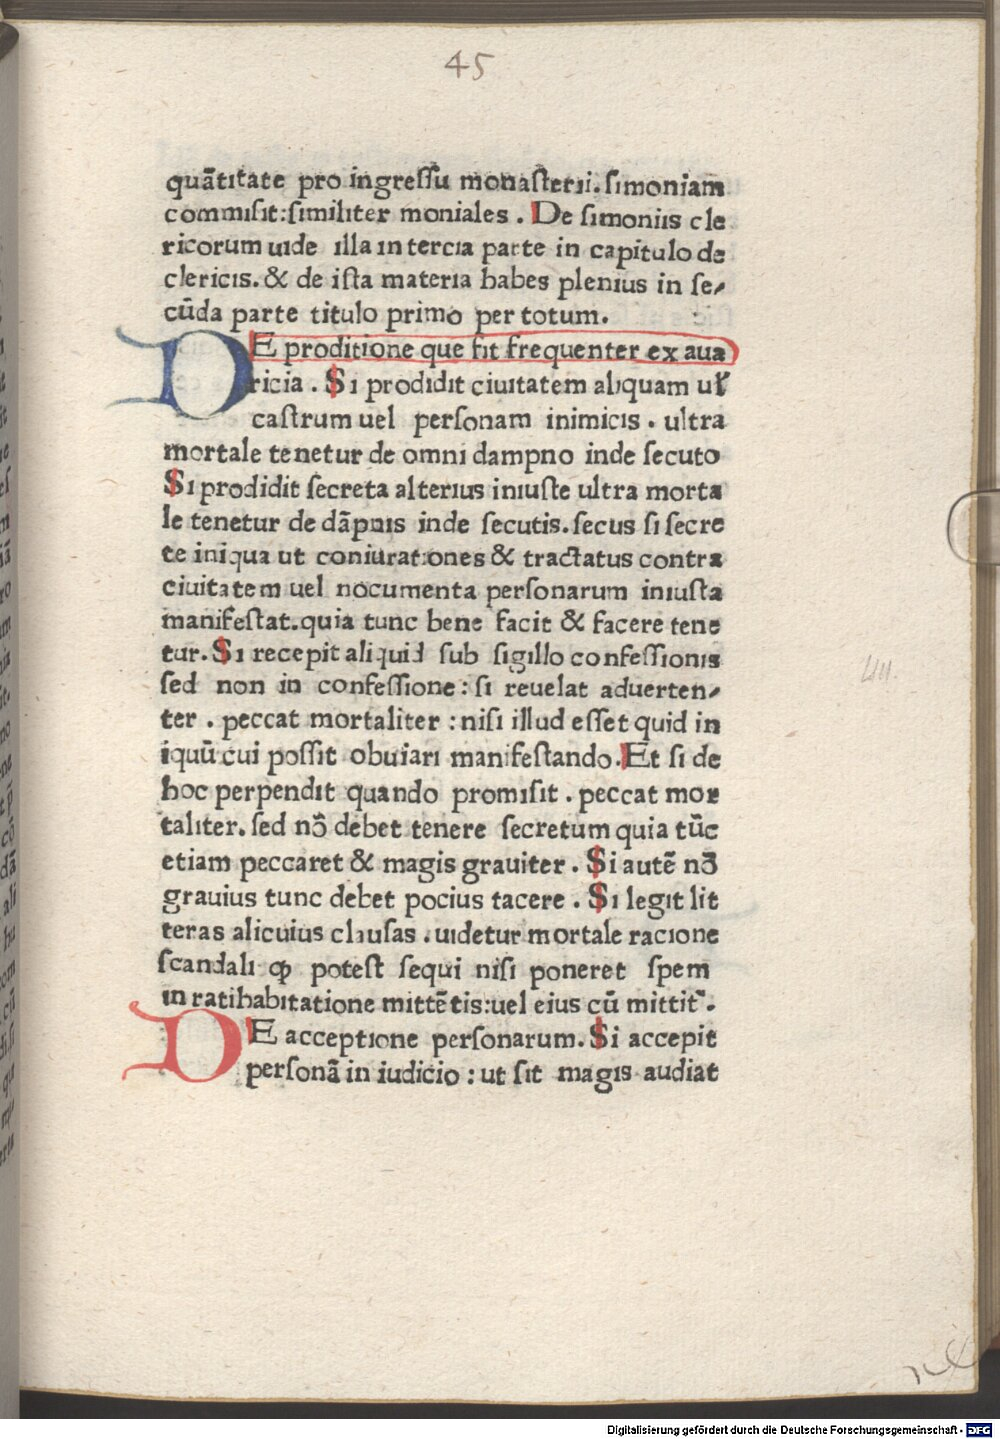 45
quãtitate pro ingreſſu monaſterii.ſimoniam
commiſit:ſimiliter moniales . De ſimoniis cle
ricorum uide illa in tercia parte in capitulo de
clericis.& de iſta materia habes plenius in ſe,
cūda parte titulo primo per totum.
DE proditione que fit frequenter ex aua
ricia . Si prodidit ciuitatem aliquam uł
caſtrum uel perſonam inimicis . ultra
mortale tenetur de omni dampno inde ſecuto
Si prodidit ſecreta alterius iniuſte ultra morta
le tenetur de dãpnis inde ſecutis.ſecus ſi ſecre
te iniqua ut coniurationes & tractatus contra
ciuitatem uel nocumenta perſonarum iniuſta
manifeſtat.quia tunc bene facit & facere tene
tur.Si recepit aliquid ſub ſigillo confeſſionis
ſed non in confeſſione:ſi reuelat aduerten,
ter . peccat mortaliter:niſi illud eſſet quid in
iquū cui poſſit obuiari manifeſtando.Et ſi de
hoc perpendit quando promiſit . peccat mor
taliter.ſed nõ debet tenere ſecretum quia tūc
etiam peccaret & magis grauiter . Si autẽ nõ
grauius tunc debet pocius tacere . Si legit lit
teras alicuius clauſas .uidetur mortale racione
ſcandali ꝙ poteſt ſequi niſi poneret ſpem
in ratihabitatione mittẽtis:uel eius cū mittit᷑.
DE acceptione perſonarum.Si accepit
perſonã in iudicio:ut ſit magis audiat
Digitalisierung gefördert durch die Deutsche Forschungsgemeinschaft - DFG